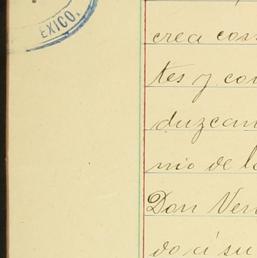 EXICO.
crea cos
tes y con
duzcan
nio de l
Don Ven
do á su